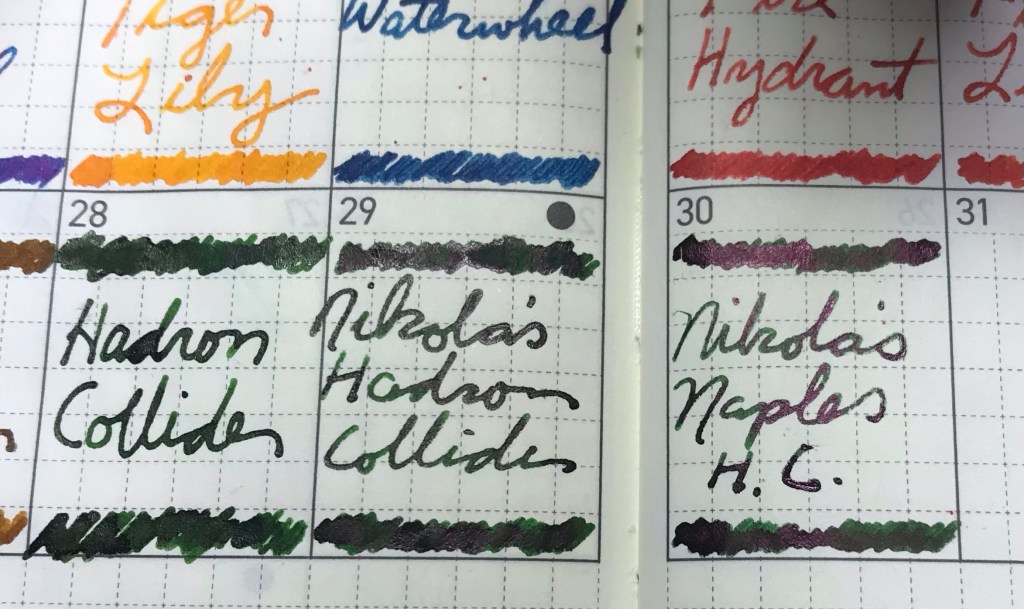 Tiger
Lily
Waterwheel
Hydrant
28
29
30
31
Hadron
Collider
Nikola's
Hadron
Collider
Nikola's
Naples
H. C.